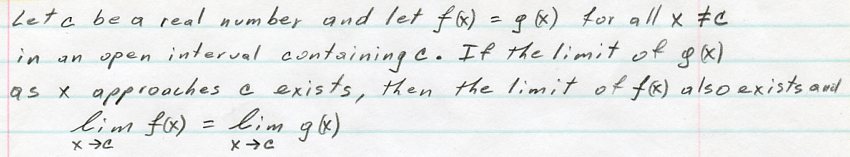 Let c be a real number and let f(x) = g(x) for all x ≠ c
in an open interval containing c. If the limit of g(x)
as x approaches c exists, then the limit of f(x) also exists and
lim f(x) = lim g(x)
x→c x→c